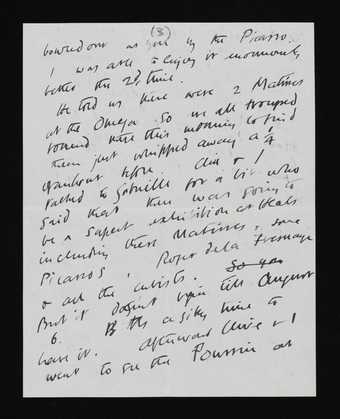 (8)
bowled over as you by the Picasso.
I was able to enjoy it enormously
better the 2nd time.
He told us there were 2 Matisses
at the Omega so we all trooped
round there this morning to find
them just whipped away a ¼
of an hour before. Clive & I
rushed to Gabrielle for a bit who
said that there was going to
be a superb exhibition at Heals
including these Matisses, some
Picassos, Roger de la Fresnaye
& all the cubists. So you
But it doesnt open till August
6. Its a silly time to
have it. Afterward Clive & I
went to see the Poussin at